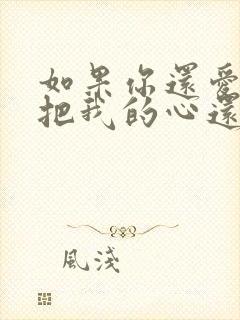 如果你還愛
把我的心還
風淺